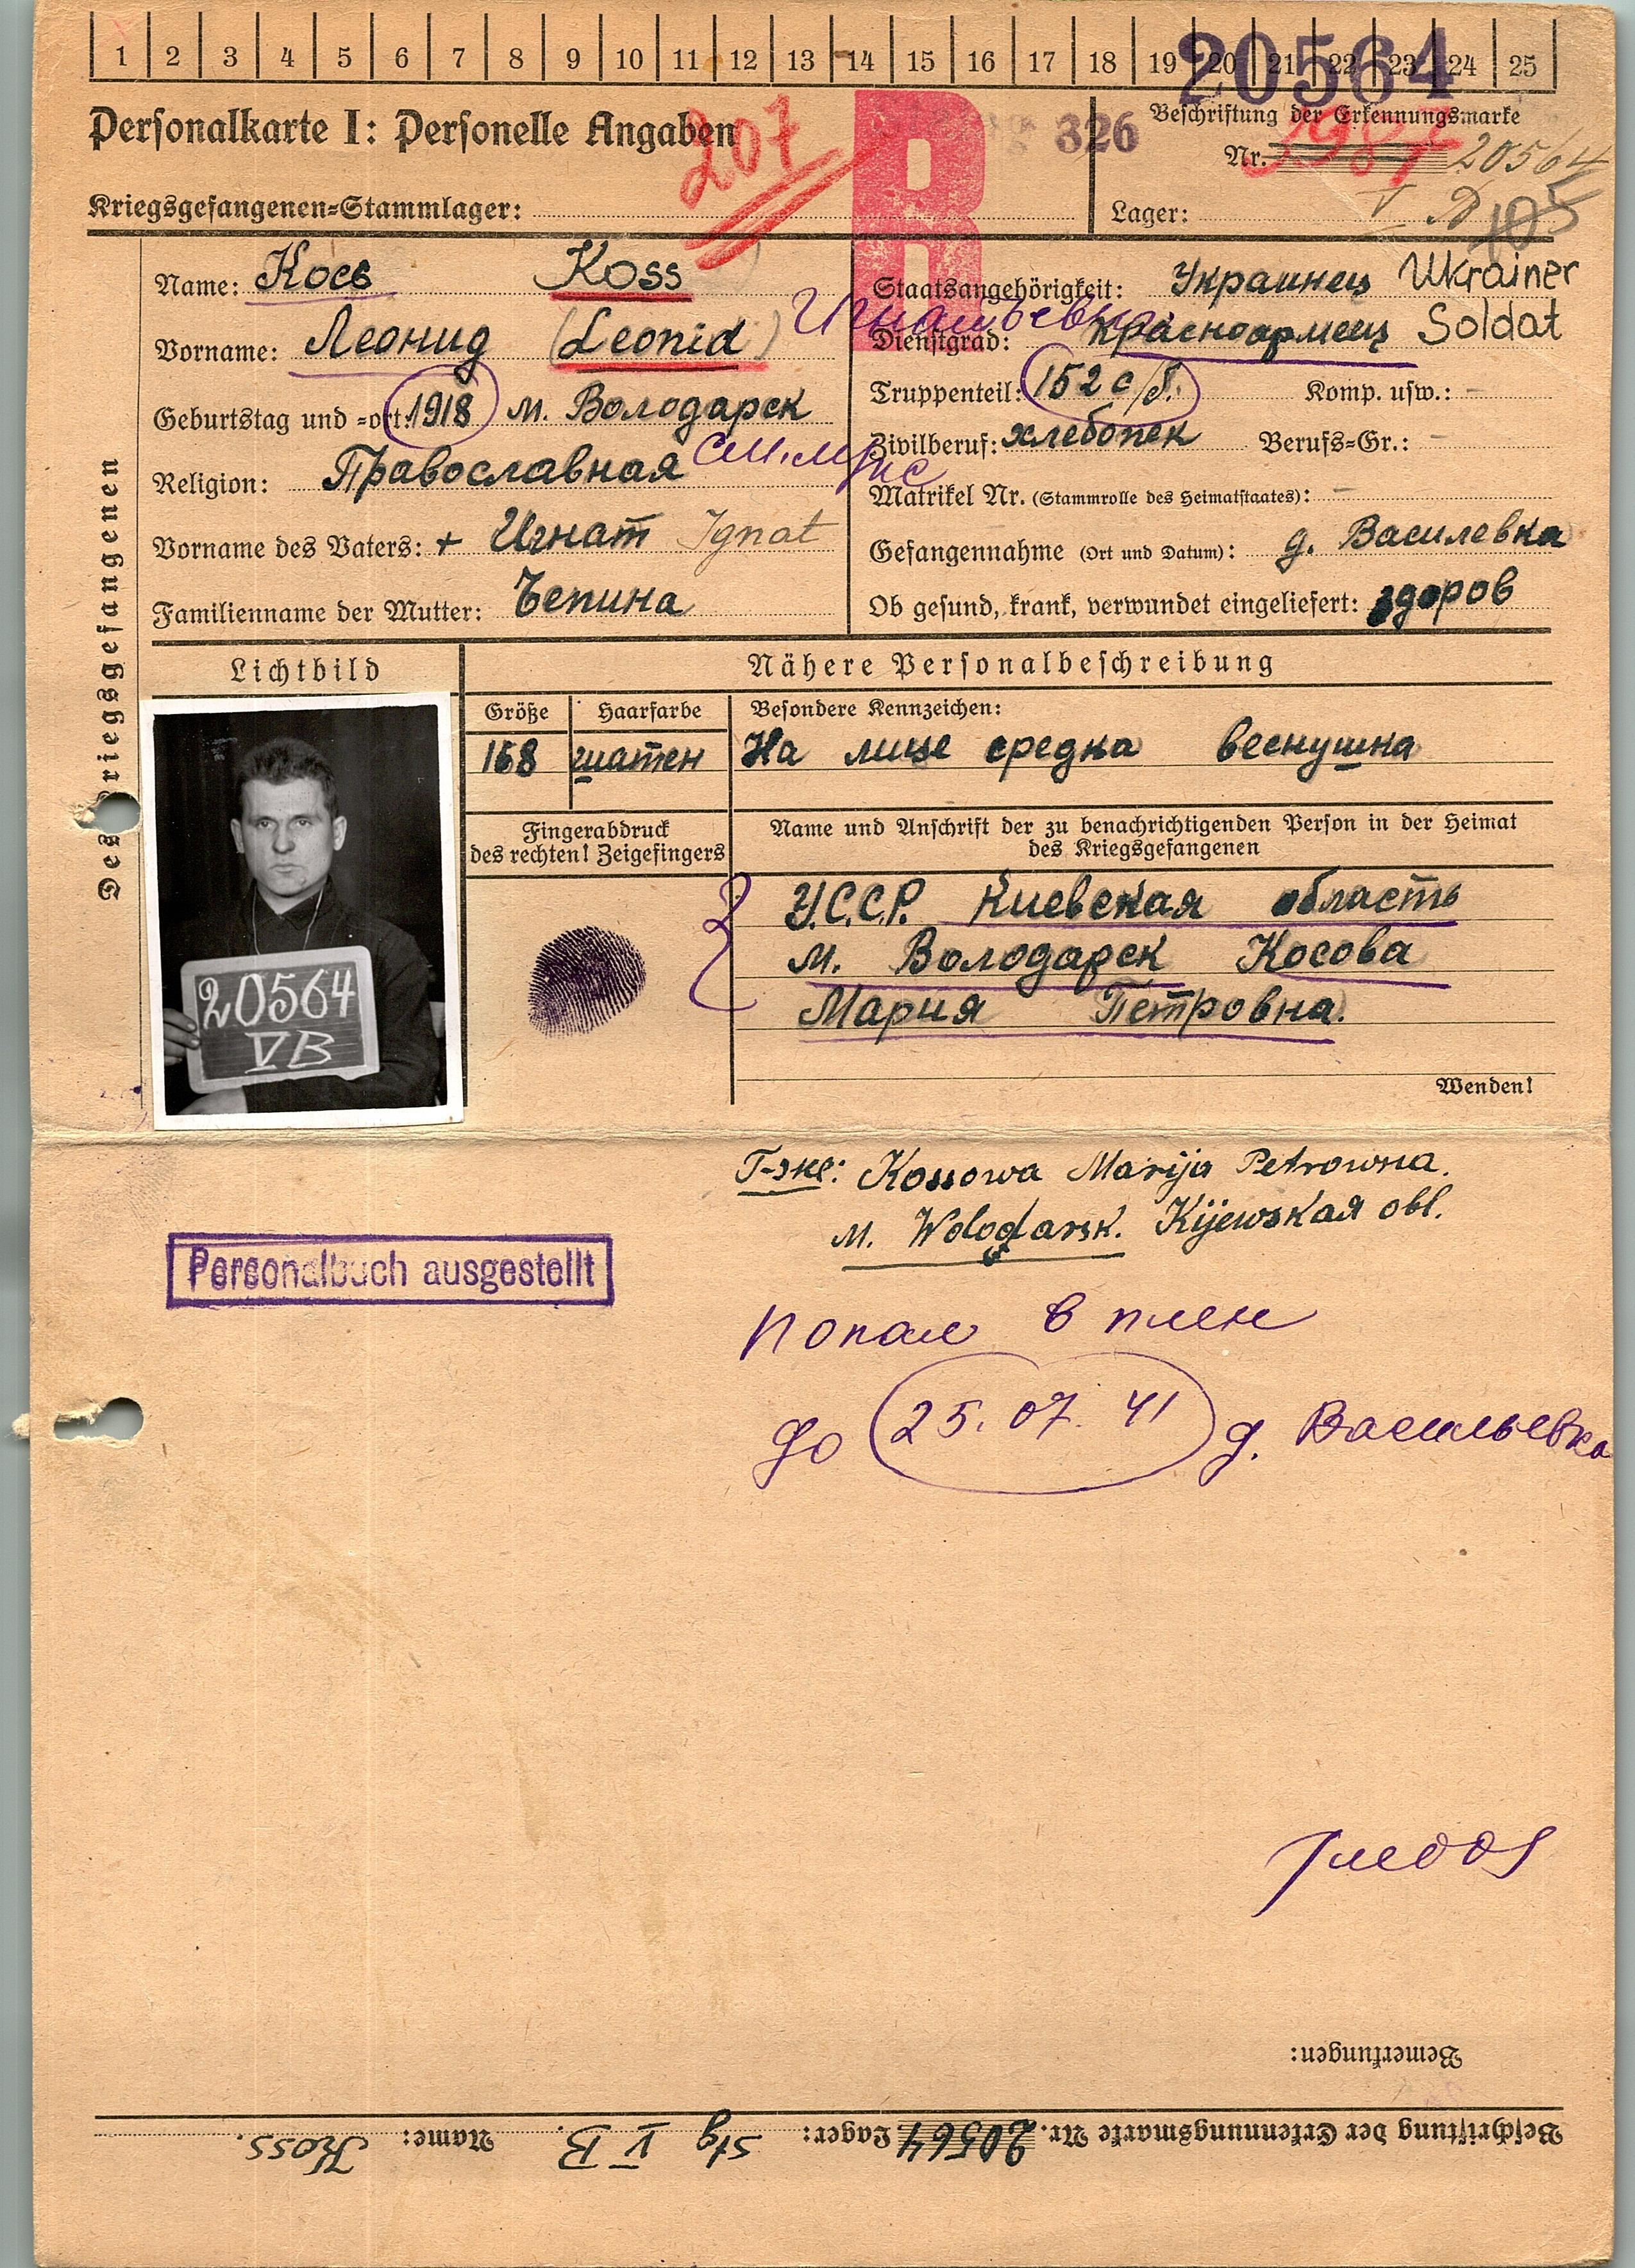 1 2 3 4 5 6 7 8 9 10 11 12 13 14 15 16 17 18 19 20 21 22 23 24 25
20564
Personalkarte I: Personelle Angaben
207
R
326
Beschriftung der Erkennungsmarke
Nr. 20564
Kriegsgefangenen=Stammlager:
Lager: V
105
Des Kriegsgefangenen
Name: Косс Koss
Vorname: Леонид (Leonid) Игнатьевич
Geburtstag und =ort: 1918 м. Володарск
см. м/ж
Religion: Православная
Vorname des Vaters: + Игнат Ignat
Familienname der Mutter: Чепина
Staatsangehörigkeit: Украинец Ukrainer
Dienstgrad: Красноармеец Soldat
Truppenteil: 152 с/б. Komp. usw.: -
Zivilberuf: хлебопек Berufs=Gr.: -
Matrikel Nr. (Stammrolle des Heimatstaates): -
Gefangennahme (Ort und Datum): д. Василевка
Ob gesund, krank, verwundet eingeliefert: здоров
Lichtbild
Nähere Personalbeschreibung
Größe Haarfarbe Besondere Kennzeichen:
168 шатен На лице средка веснушка
Fingerabdruck
des rechten! Zeigefingers
Name und Anschrift der zu benachrichtigenden Person in der Heimat
des Kriegsgefangenen
У.С.С.Р. Киевская область
м. Володарск Косова
Мария Петровна.
20564
VB
Wenden!
Kossowa Marija Petrowna.
м. Wolodarsk. Kijewskaя obl.
Personalbuch ausgestellt
попал в плен
до 25.07.41 д. Васильевка
Bemerkungen:
Beschriftung der Erkennungsmarke Nr. 20564 Lager: Stg V B. Name: Koss.